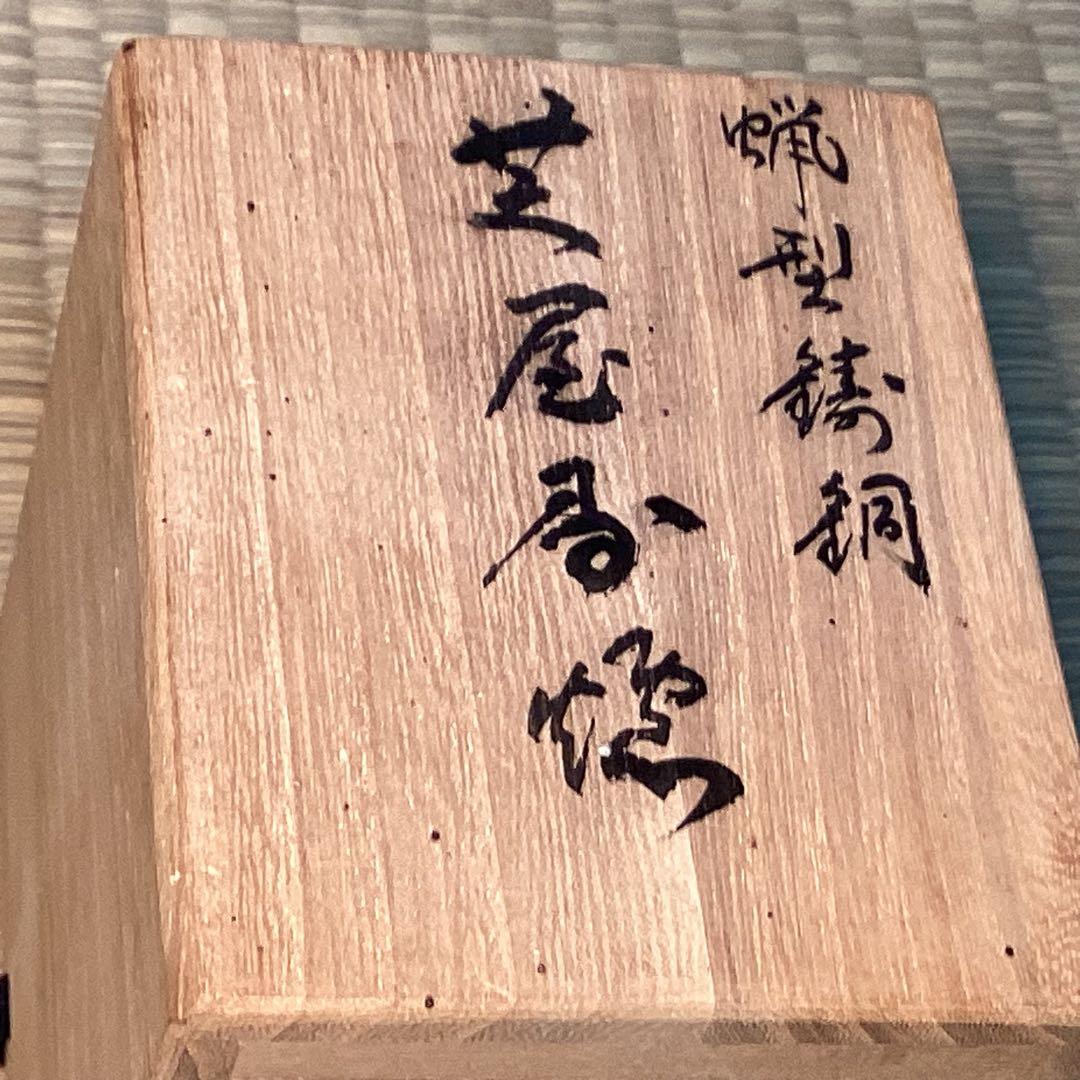 蝋型鋳銅
芝屋寿爐